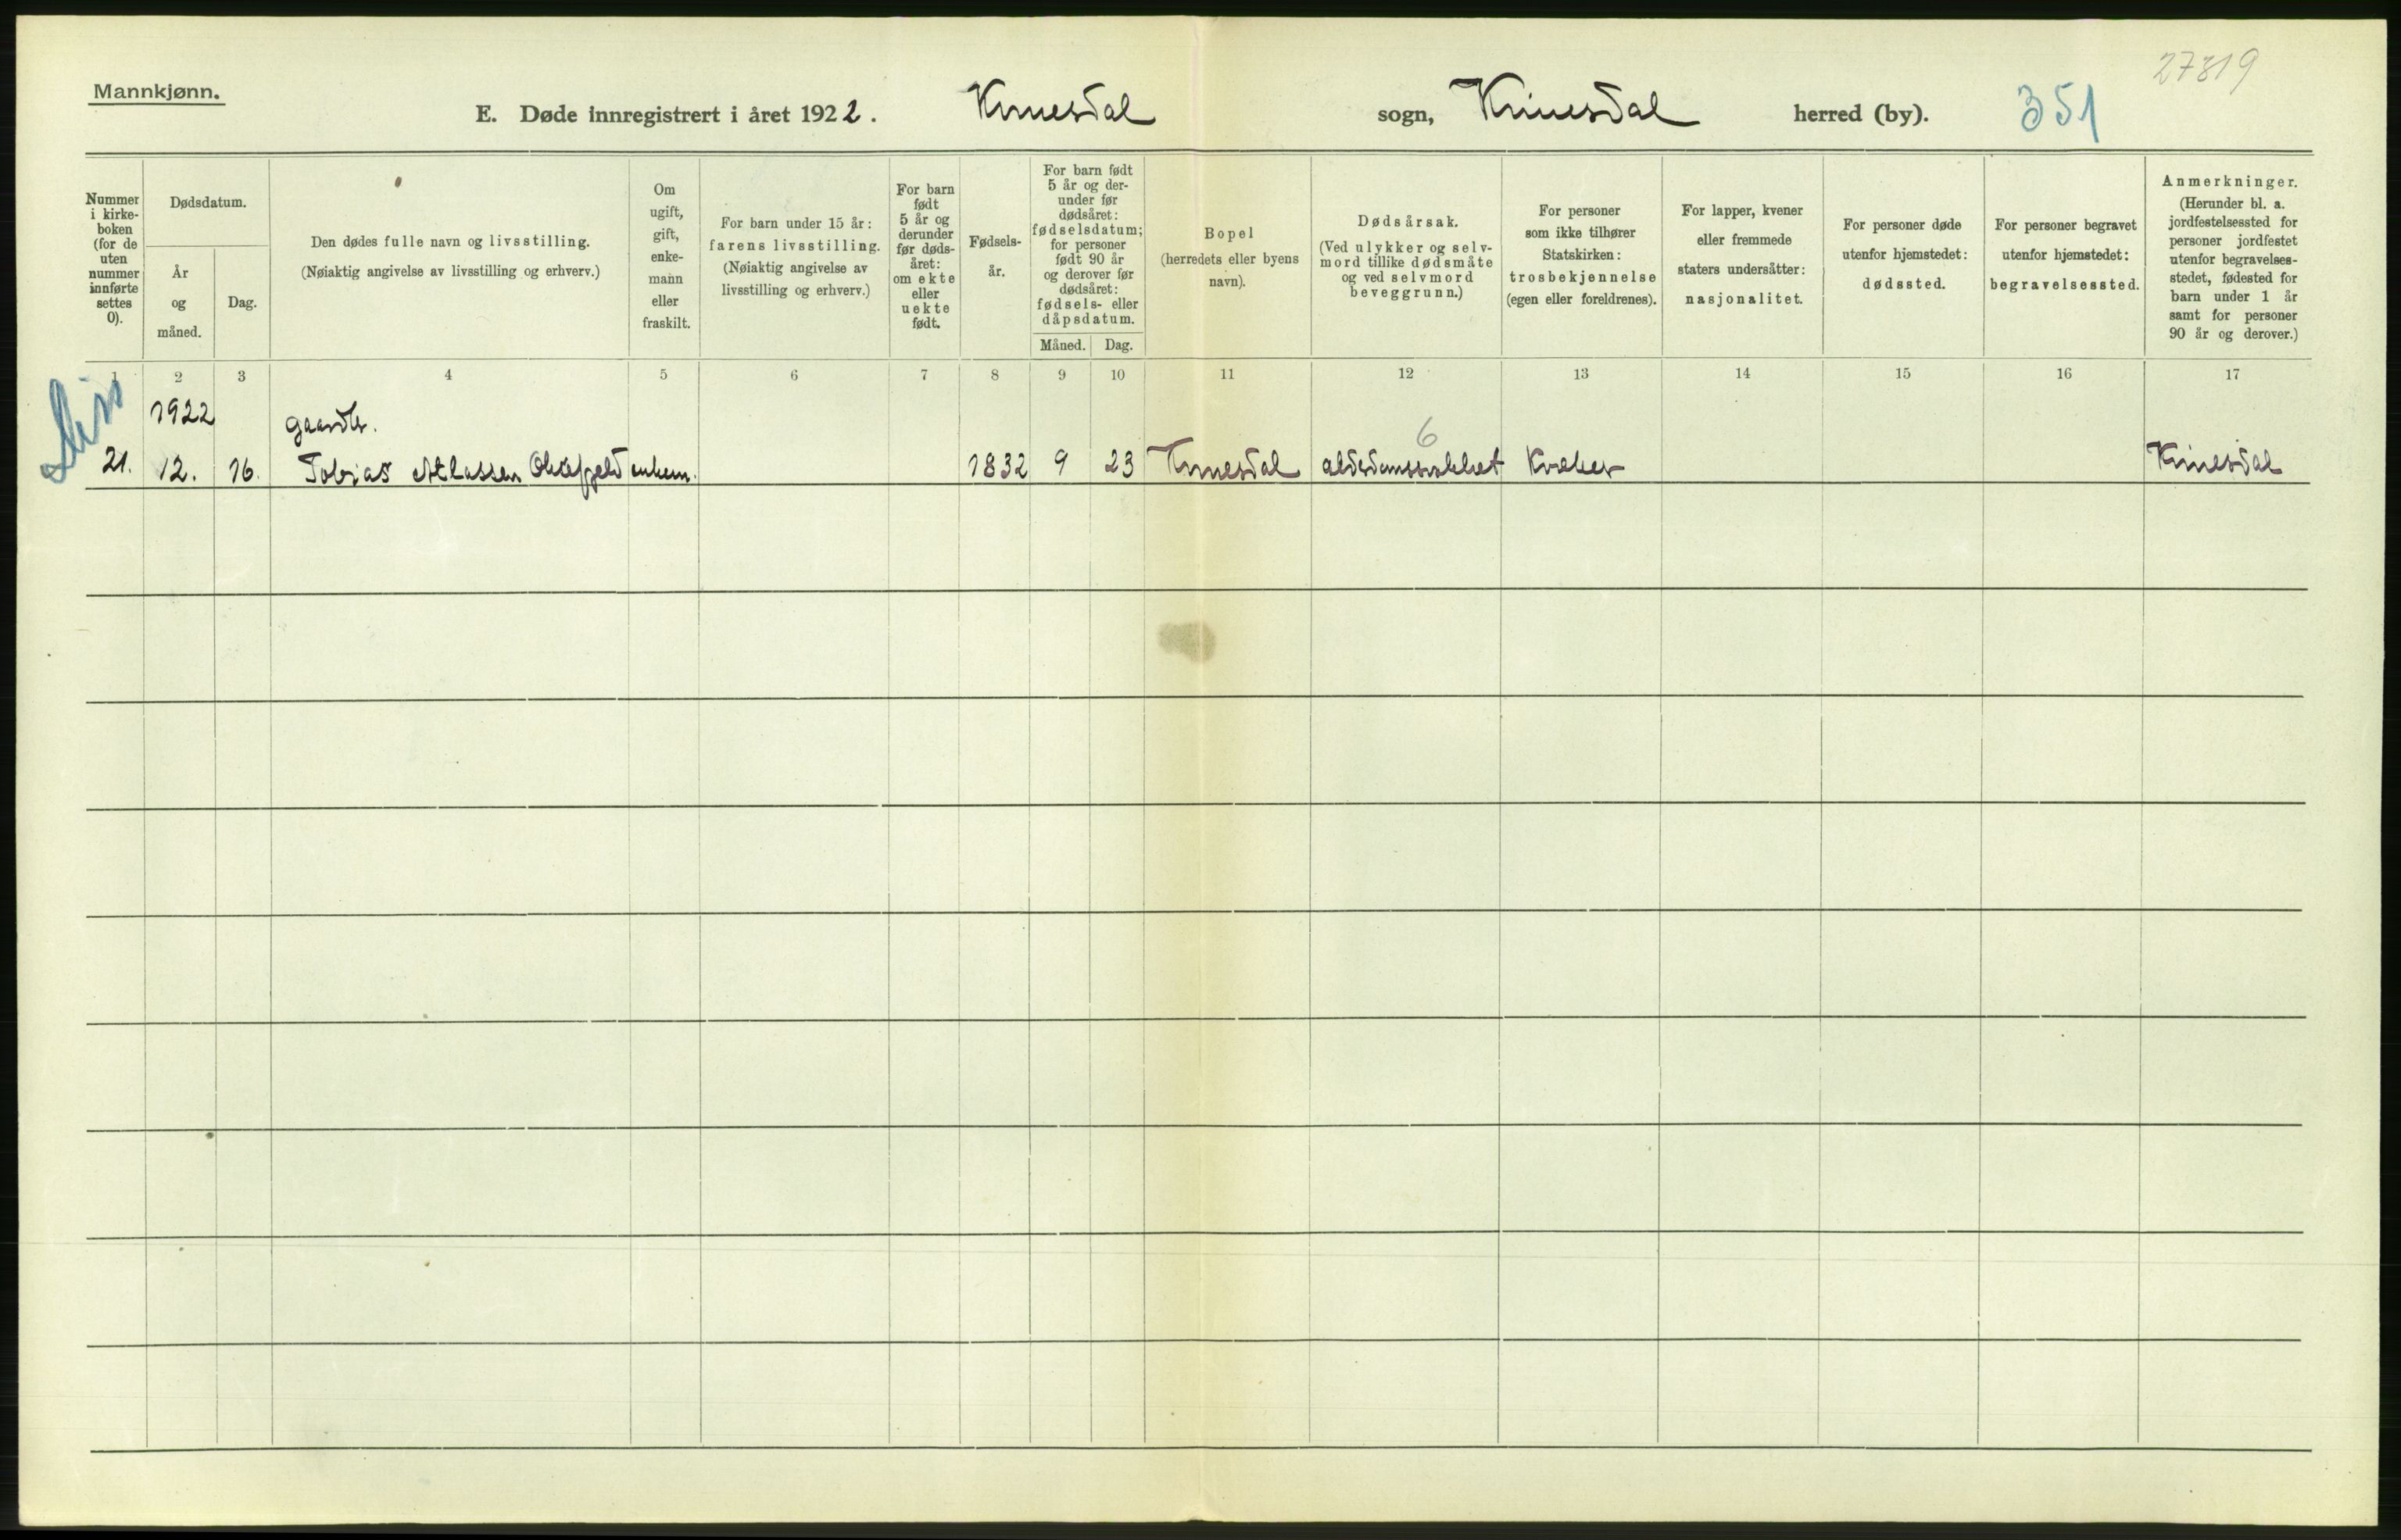 27819
Mannkjønn.
E. Døde innregistrert i året 1922. Kvinesdal sogn, Kvinesdal herred (by). 351
Nummer i kirke- boken (for de uten nummer innførte settes 0).
Dødsdatum.
År og måned.
Dag.
Den dødes fulle navn og livsstilling.
(Nøiaktig angivelse av livsstilling og erhverv.)
Om ugift, gift, enke- mann eller fraskilt.
For barn under 15 år:
farens livsstilling.
(Nøiaktig angivelse av
livsstilling og erhverv.)
For barn født 5 år og derunder før døds- året: om ekte eller uekte født.
Fødsels- år.
For barn født
5 år og der-
under før
dødsåret:
fødselsdatum;
for personer
født 90 år
og derover før
dødsåret:
fødsels- eller
dåpsdatum.
Måned. Dag.
Bopel
(herredets eller byens
navn).
Dødsårsak.
(Ved ulykker og selv-
mord tillike dødsmåte
og ved selvmord
beveggrunn.)
For personer
som ikke tilhører
Statskirken:
trosbekjennelse
(egen eller foreldrenes).
For lapper, kvener
eller fremmede
staters undersåtter:
nasjonalitet.
For personer døde
utenfor hjemstedet:
dødssted.
For personer begravet
utenfor hjemstedet:
begravelsessted.
Anmerkninger.
(Herunder bl. a.
jordfestelsessted for
personer jordfestet
utenfor begravelses-
stedet, fødested for
barn under 1 år
samt for personer
90 år og derover.)
1 2 3 4 5 6 7 8 9 10 11 12 13 14 15 16 17
1922 gaardb. 6
21. 12. 16. Tobias Atlassen enkem. 1832 9 23 Kvinesdal alderdomssvakhet Kvæker Kvinesdal